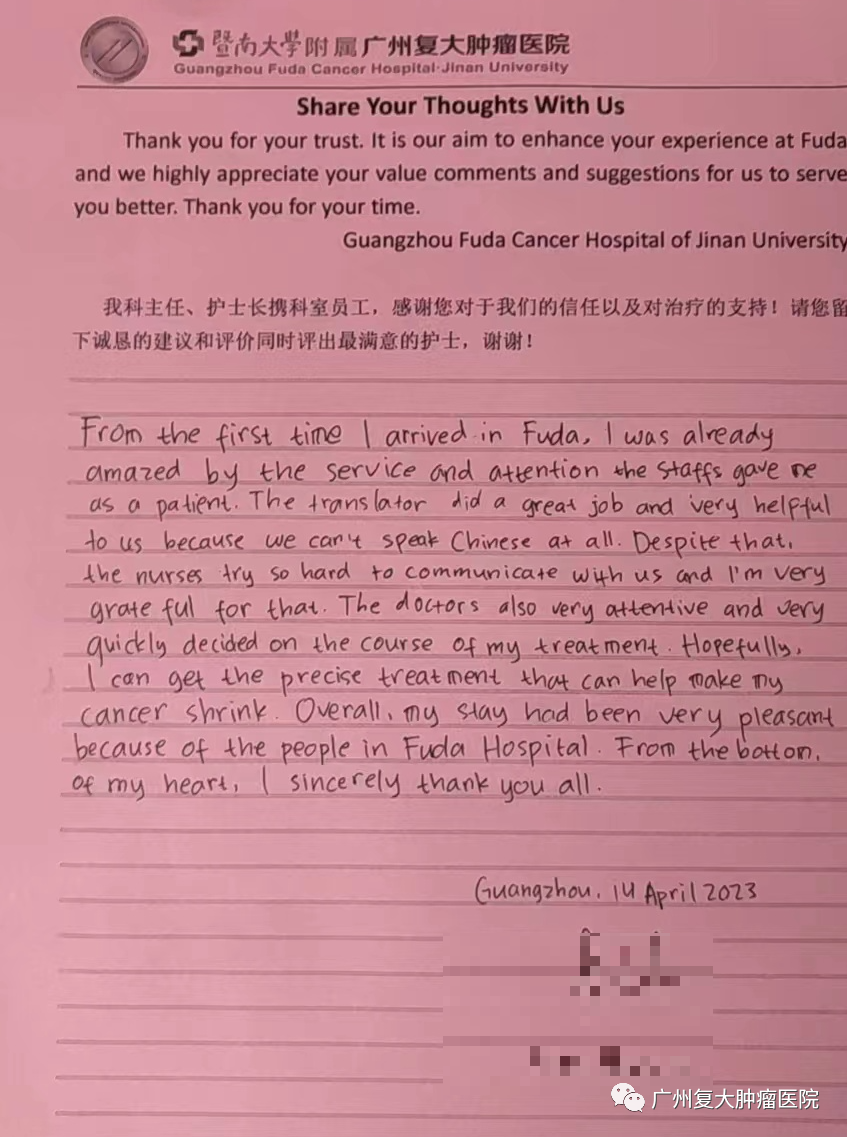 暨南大學附属广州复大肿瘤医院
Guangzhou Fuda Cancer Hospital·Jinan University
Share Your Thoughts With Us
Thank you for your trust. It is our aim to enhance your experience at Fuda
and we highly appreciate your value comments and suggestions for us to serve
you better. Thank you for your time.
Guangzhou Fuda Cancer Hospital of Jinan University
我科主任、护士长携科室员工，感谢您对于我们的信任以及对治疗的支持！请您留
下诚恳的建议和评价同时评出最满意的护士，谢谢！
From the first time I arrived in Fuda, I was already
amazed by the service and attention the staffs gave me
as a patient. The translator did a great job and very helpful
to us because we can't speak Chinese at all. Despite that,
the nurses try so hard to communicate with us and I'm very
grateful for that. The doctors also very attentive and very
quickly decided on the course of my treatment. Hopefully,
I can get the precise treatment that can help make my
cancer shrink. Overall, my stay had been very pleasant
because of the people in Fuda Hospital. From the bottom,
of my heart, I sincerely thank you all.
Guangzhou, 14 April 2023
广州复大肿瘤医院